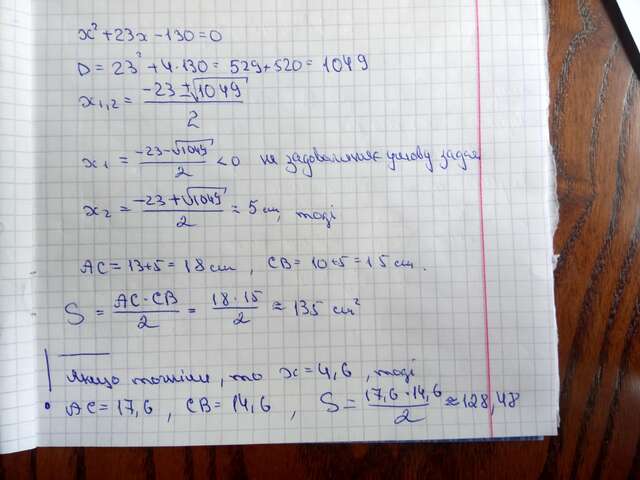 x² + 23x - 130 = 0
D = 23² + 4·130 = 529 + 520 = 1049
x₁,₂ = (-23 ± √1049)/2
x₁ = (-23 - √1049)/2 < 0 не задовольняє умову задачі
x₂ = (-23 + √1049)/2 ≈ 5 см, тоді
AC = 13 + 5 = 18 см, CB = 10 + 5 = 15 см.
S = AC·CB/2 = 18·15/2 = 135 см²
Якщо точніше, то x = 4,6, тоді
AC = 17,6, CB = 14,6, S = 17,6·14,6/2 ≈ 128,48